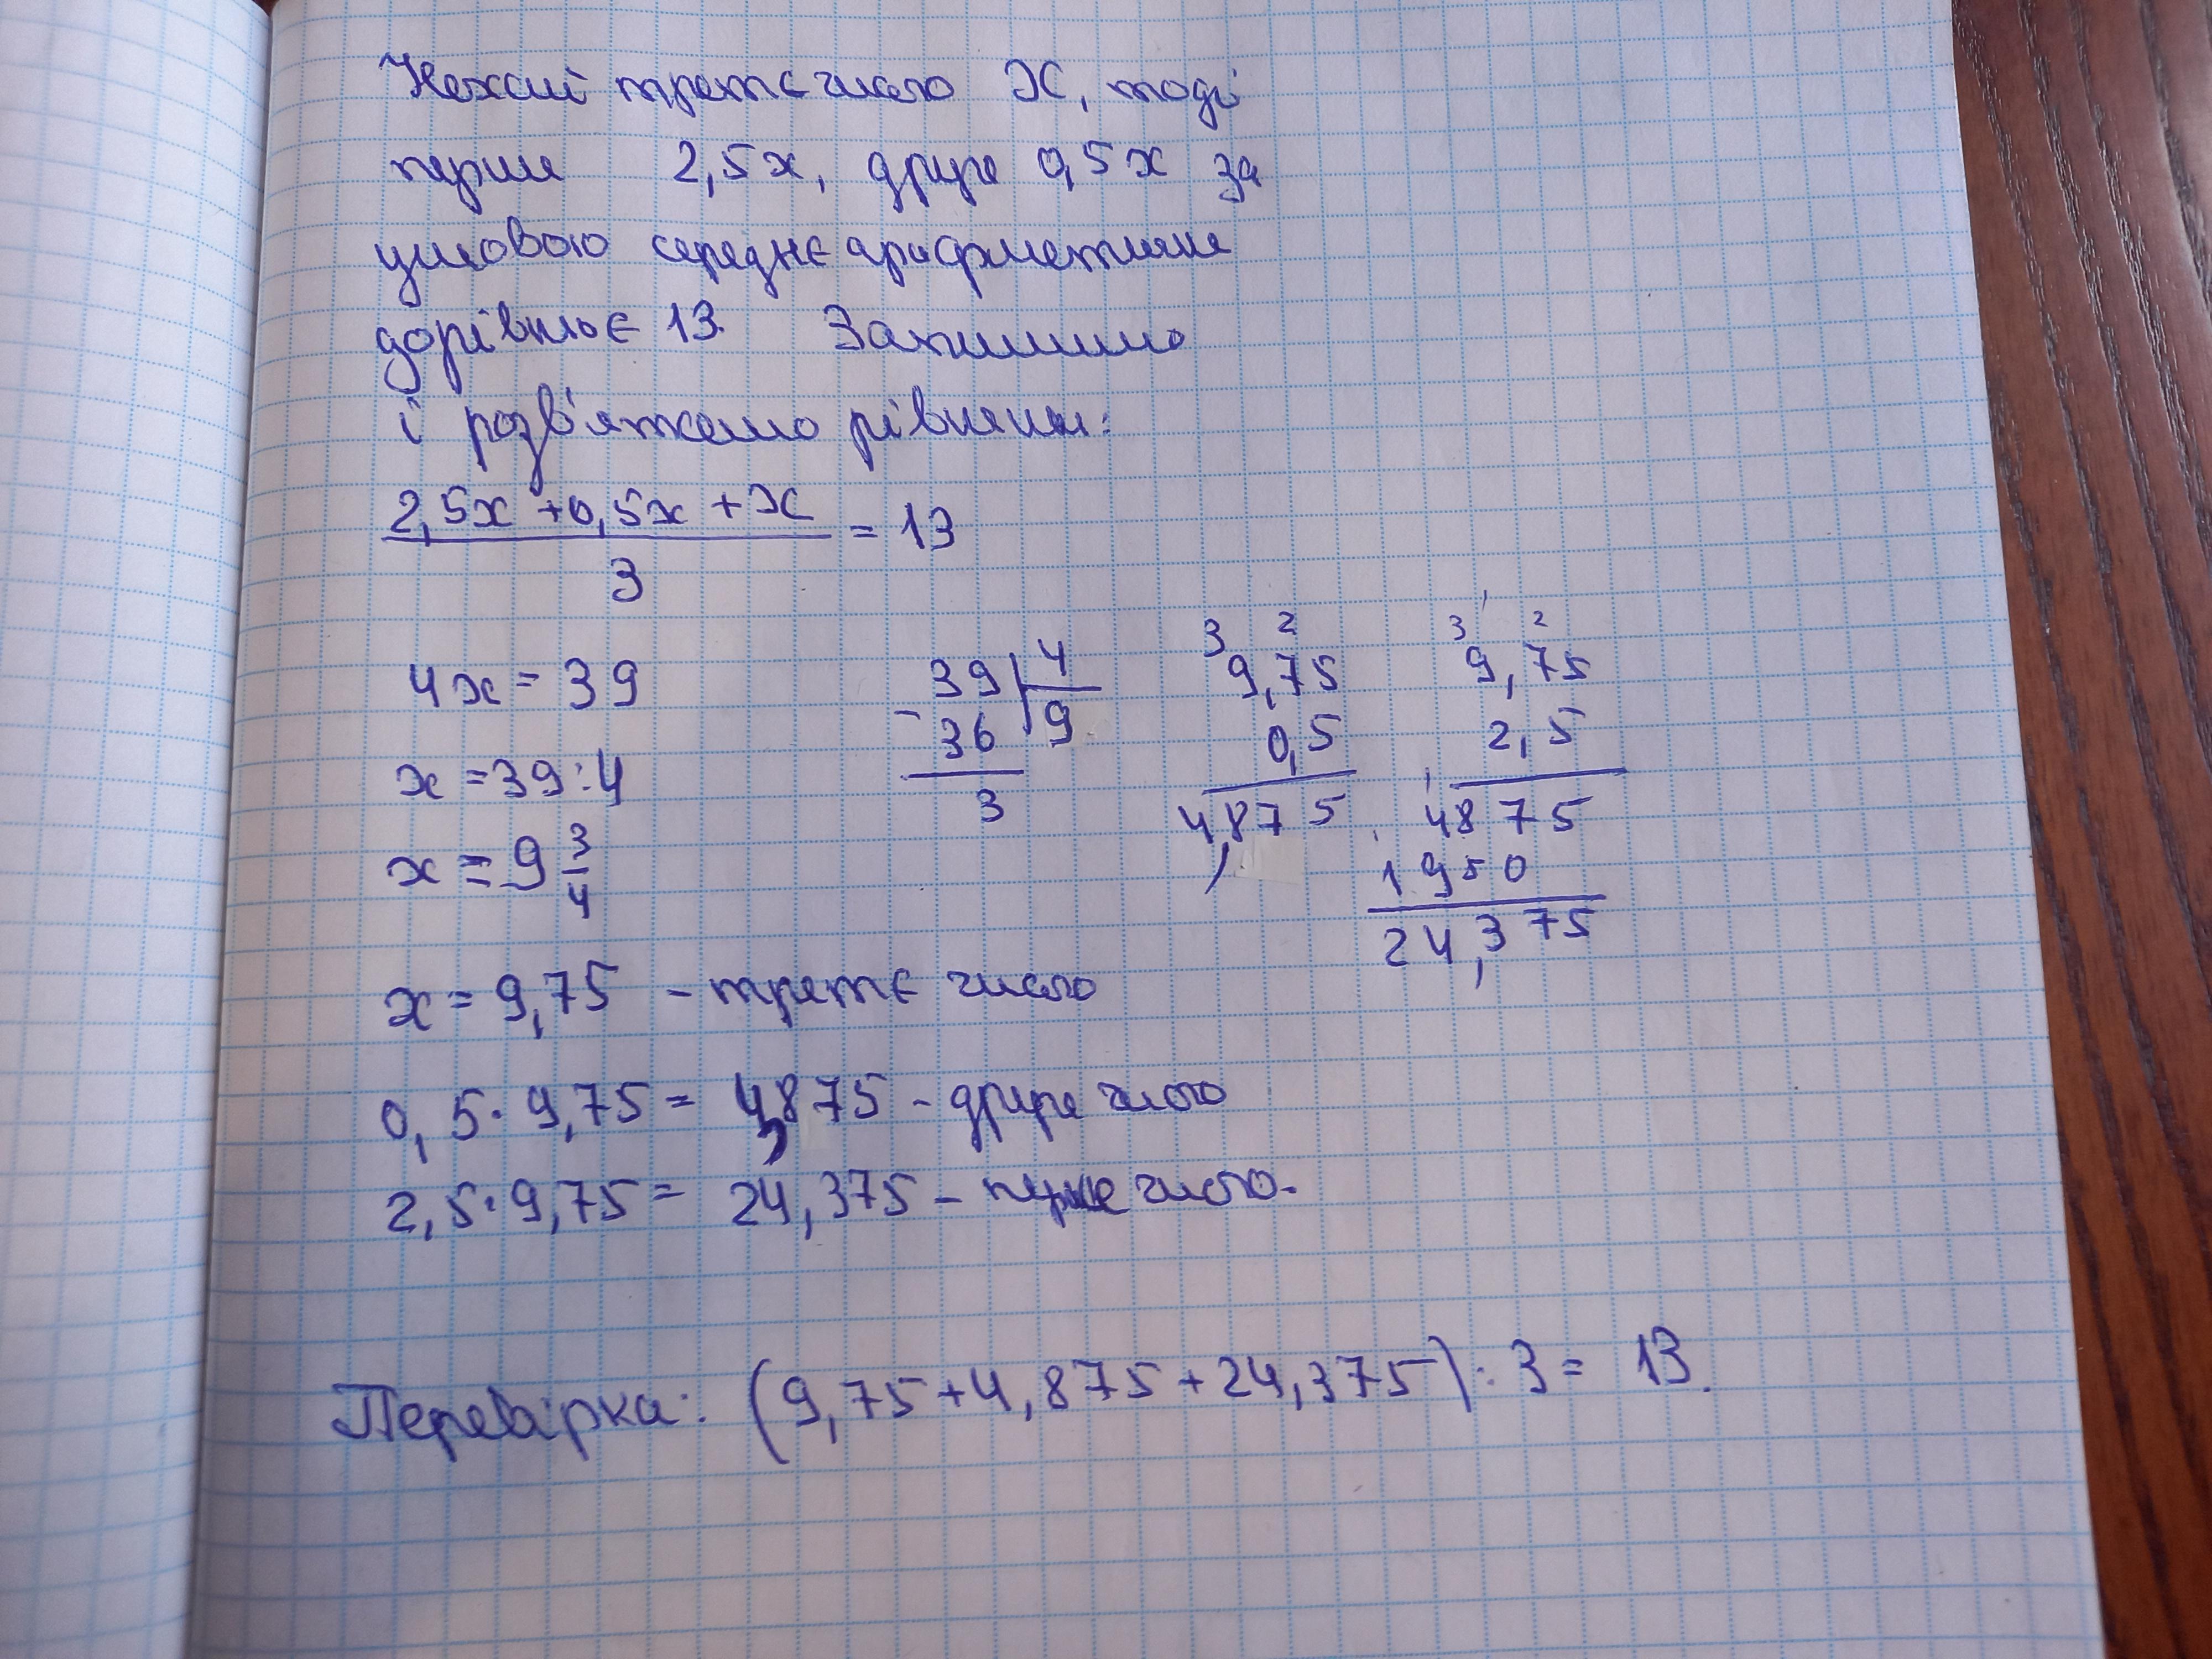 Нехай третє число х, тоді
перше 2,5х, друге 0,5х за
умовою середнє арифметичне
дорівнює 13. Запишимо
і розв'яжемо рівняння:
(2,5х + 0,5х + х) / 3 = 13
4х = 39
х = 39 : 4
х = 9 3/4
- 39 | 4
36 | 9
3
3 2
9,75
0,5
4,875
3 2
9,75
2,5
4875
1950
24,375
х = 9,75 - третє число
0,5 · 9,75 = 4,875 - друге число
2,5 · 9,75 = 24,375 - перше число.
Перевірка: (9,75 + 4,875 + 24,375) : 3 = 13.